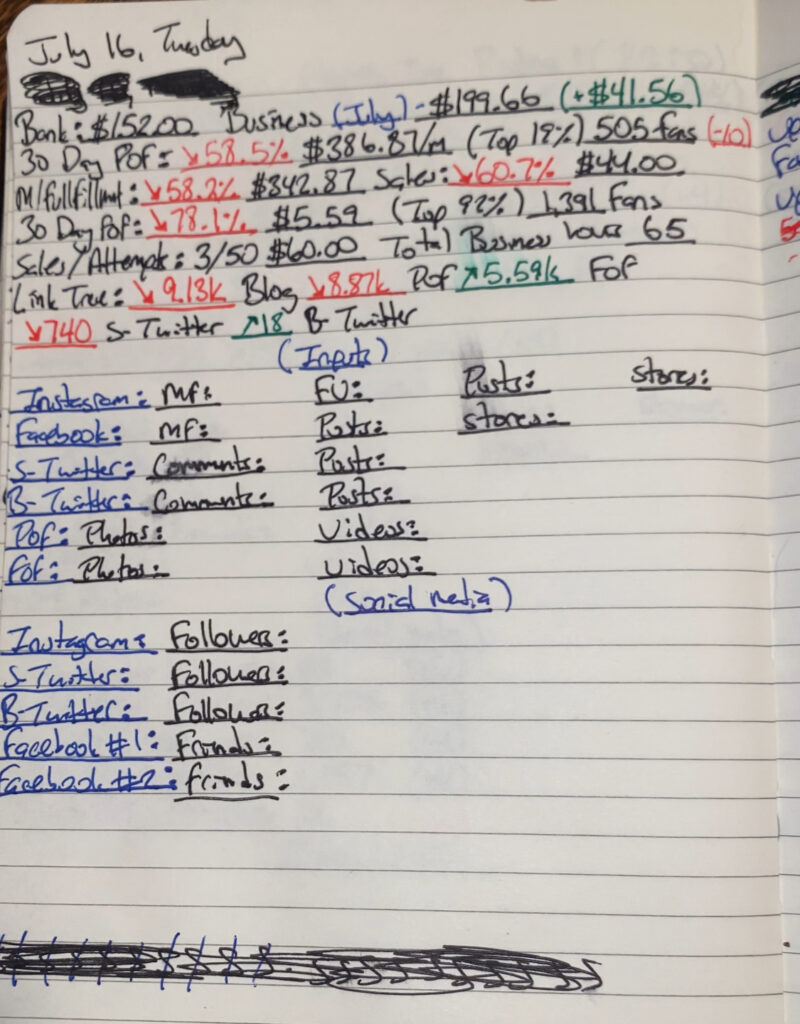 July 16, Tuesday
Bank: $152.00 Business (July) - $199.66 (+$41.56)
30 Day Pof: ↘58.5% $386.87/m (Top 19%) 505 fans (-10)
M/fullfillmnt: ↘58.2% $342.87 Sales: ↘60.7% $44.00
30 Day Fof: ↘78.1% $5.59 (Top 92%) 1,391 Fans
Sales/Attempts: 3/50 $60.00 Total Business hours 65
Link Tree: ↘9.13k Blog ↘8.87k Pof ↗5.59k Fof
↘740 S-Twitter ↗18 B-Twitter
(Inputs)
Instagram: MF: FU: Posts: stores:
Facebook: MF: Posts: stores:
S-Twitter: Comments: Posts:
B-Twitter: Comments: Posts:
Pof: Photos: Videos:
Fof: Photos: Videos:
(Social media)
Instagram: Followers:
S-Twitter: Followers:
B-Twitter: Followers:
Facebook #1: Frinds:
Facebook #2: frinds: